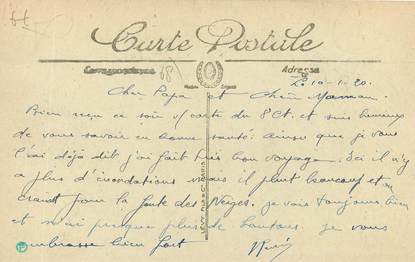 Carte Postale
Correspondance
Adresse
10-1-20.
Cher Papa et Chère Maman.
Bien reçu ce soir v/ carte du 8 Ct. et suis heureux
de vous savoir en bonne santé; ainsi que je vous
l'ai déjà dit j'ai fait très bon voyage. Ici il n'y
a plus d'inondations mais il pleut beaucoup et on
craint pour la fonte des Neiges. je vais toujours bien
et n'ai presque plus de boutons. Je vous
embrasse bien fort
René